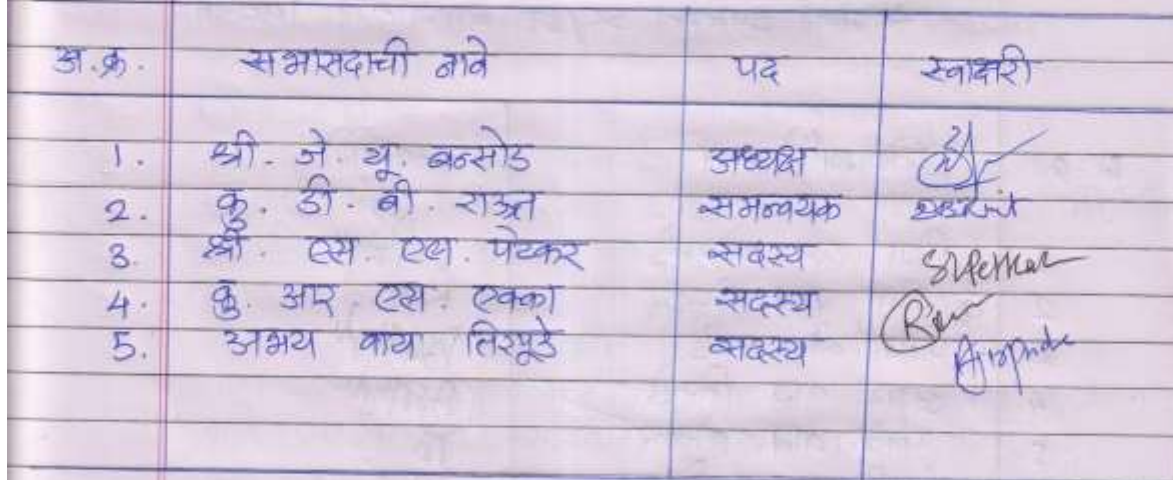 अ.क्र. सभासदाची नावे पद स्वाक्षरी
1. श्री. जे. यू. बन्सोड अध्यक्ष
2. कु. डी. बी. राऊत समन्वयक
3. श्री. एस. एल. पेटकर सदस्य SLPetkar
4. कु. आर. एस. एक्का सदस्य
5. अभय वाय तिरपूडे सदस्य